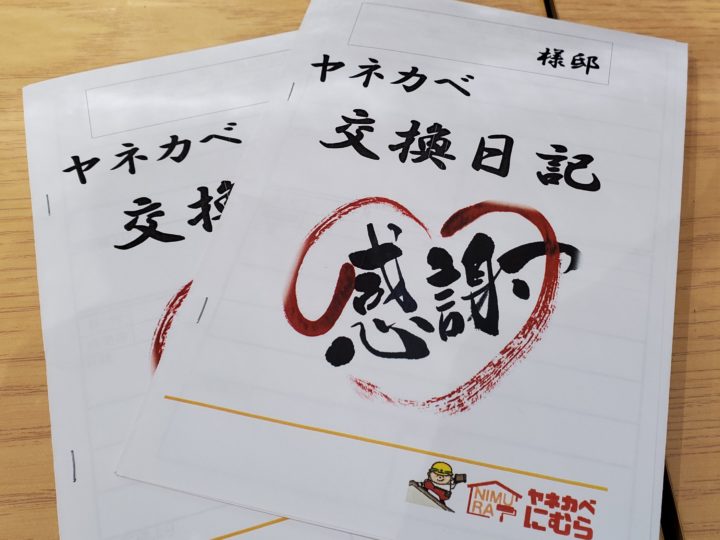 様邸
ヤネカベ
交換日記
感謝
NIMU
RA
ヤネカベ
にむら
ヤネカベ
交換